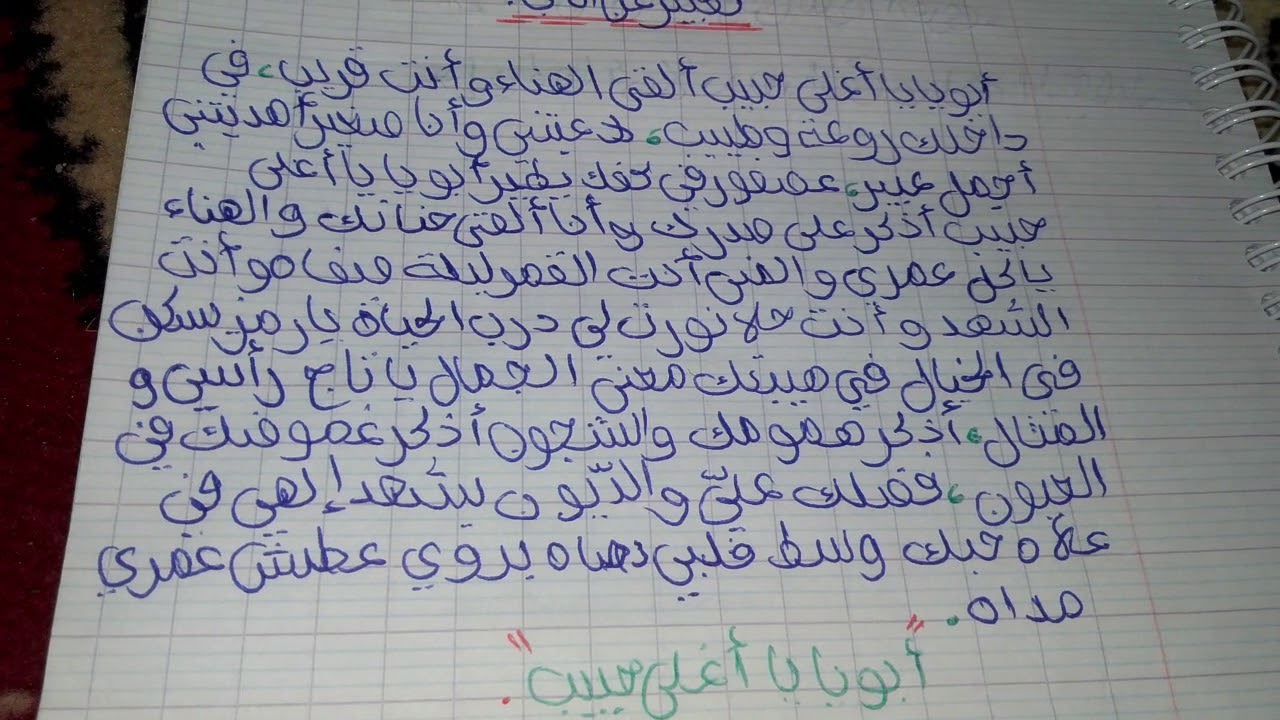 تعبير عن الأب.
أبويا يا أغلى حبيب ألقى الهناء و أنت قريب، في
داخلك روعة وطيب، دعتني و أنا صغير أهديتني
أجمل عبير، عصفور في كفك يطير أبويا يا أغلى
حبيب أذكر على صدرك و أنا ألقى حنانك و الهناء
يا كل عمري و الغنى أنت القمر ليلة صفاه و أنت
الشهد و أنت حلا نورت لي درب الحياة يا رمز سكن
في الخيال في هيبتك معنى الجمال يا تاج رأسي و
المثال، أذكر همومك والشجون أذكر غموضك في
العيون، فضلك عليّ والديّون يشهد إلهي في
علاه حبك وسط قلبي دماه يروي عطش عمري
مداه.
"أبويا يا أغلى حبيب".